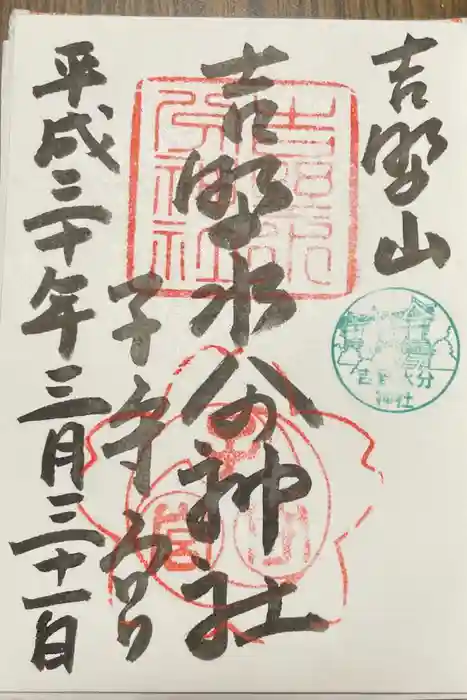 吉野山
吉野水分神社
子守
平成三十年三月三十一日
吉野水
分神社
吉野水分
神社